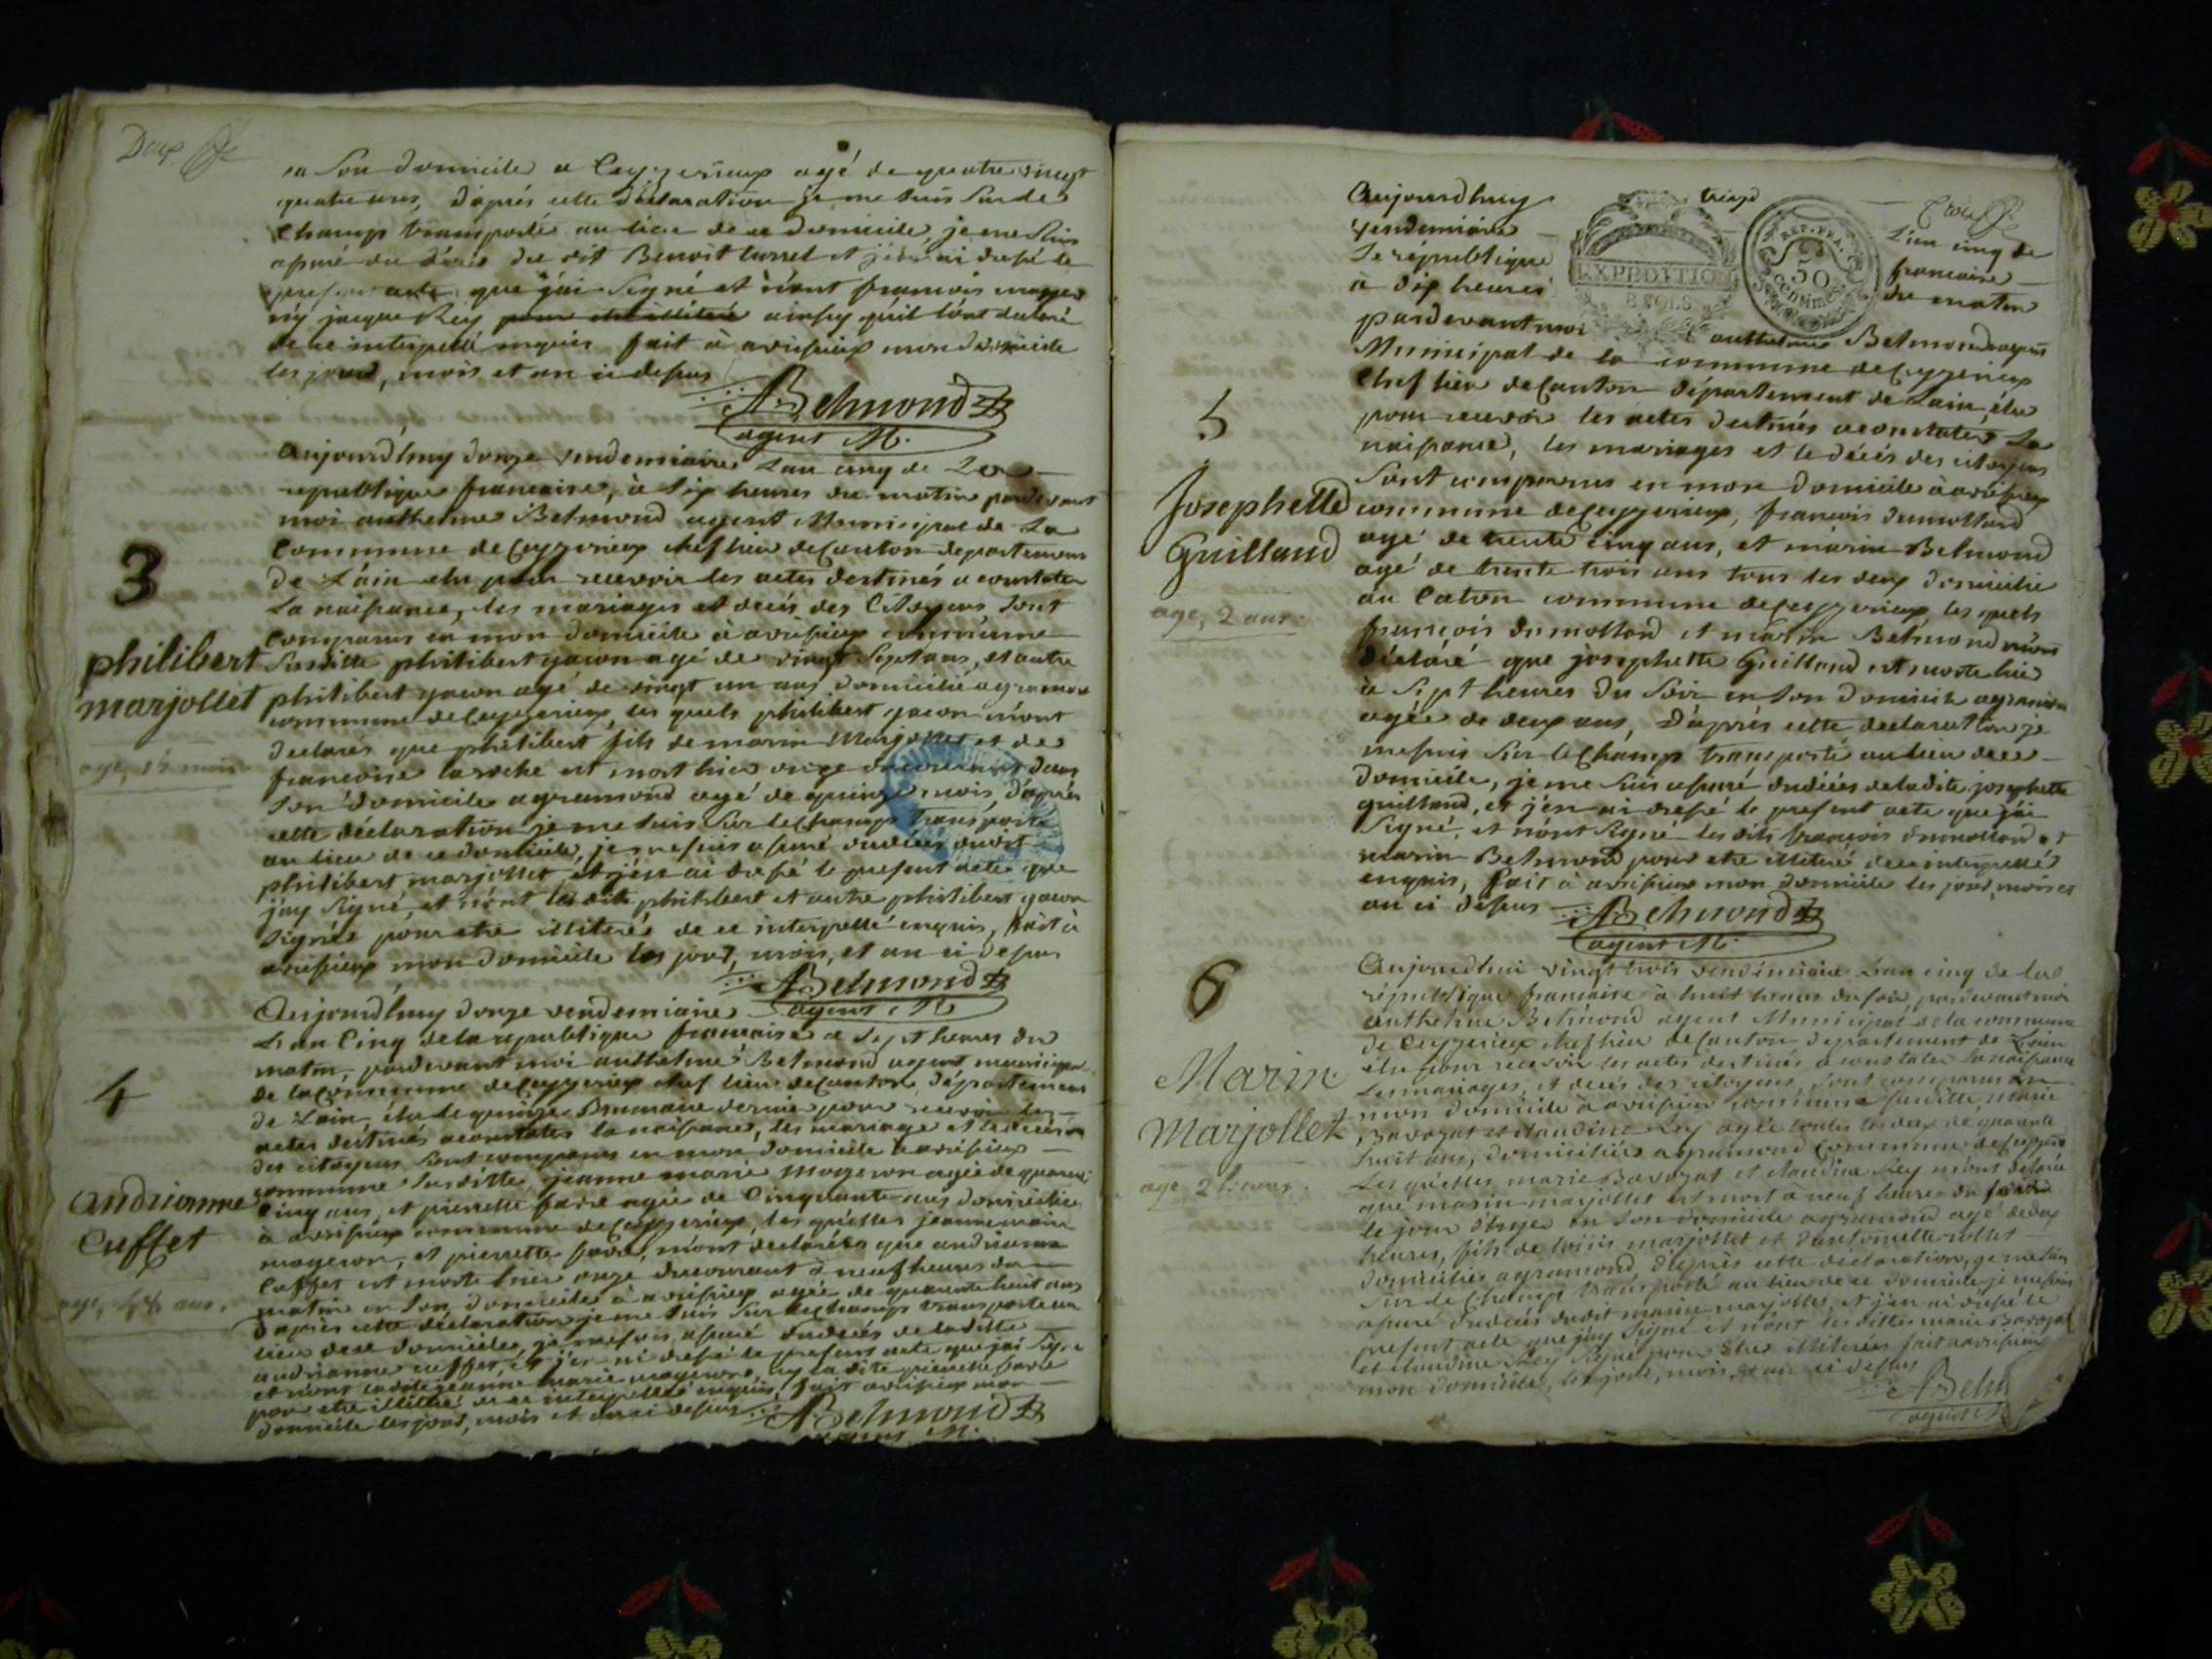 Deux
en son domicile a Ceyzerieux agé de quatre vingt
quatre ans, d'aprés cette déclaration je me suis sur de
Champ transporté au lieu de ce domicile, je me suis
assuré du décés du dit Benoit turrel et j'en ai dressé le
present acte que j'ai signé et n'ont françois
ny jacque Rey ainsy quil l'ont declaré
de ce interpellé enquis fait à avrissieux mon domicile
les jour, mois et an ci dessus
ABelmond
agent M.
3
philibert
marjollet
age, 15 mois
Aujourd'huy douze vendemiaire L'an cinq de La
republique francaise, à dix heures du matin pardevant
moi anthelme Belmond agent Municipal de La
Commune de Ceyzerieux chef lieu de Canton departement
de L'ain elu pour recevoir les actes destinés a constater
La naissance, les mariages et decés des Citoyens sont
Comparus en mon domicile à avrissieux commune
susditte philibert yacon agé de vingt sept ans, et autre
philibert yacon agé de vingt un ans domicilié agramond
commune de Ceyzerieux, les quels philibert yacon m'ont
declarés que philibert fils de marin Marjollet et de
francoise laroche est mort hier onze du courant dans
son domicile agramond agé de quinze mois, d'aprés
cette déclaration je me suis sur le champ transporté
au lieu de ce domicile, je me suis assuré du décés du dit
philibert marjollet et j'en ai dressé le present acte que
j'ay signé, et n'ont les dits philibert et autre philibert yacon
signés pour etre illiterés de ce interpellé enquis, fait à
avrissieux mon domicile les jour, mois, et an ci dessus
ABelmond
agent M
4
andrianne
Cuffet
age, 48 ans.
Aujourd'huy douze vendemiaire
L'an Cinq de la republique francaise a sept heures du
matin pardevant moi anthelme Belmond agent municipal
de la Commune de Ceyzerieux chef lieu de canton département
de L'ain, élu le quinze Brumaire dernier pour recevoir les
actes destinés a constater la naissance, les mariage et le décés
des citoyens sont comparus en mon domicile à avrissieux
commune susditte, jeanne marie mogeron agée de quarante
Cinq ans, et pierrette favre agée de Cinquante ans domiciliées
à avrissieux commune de Ceyzerieux, les quelles jeanne marie
mogeron, et pierrette favre, m'ont declarées que andrianne
Cuffet est morte hier onze du courant à neuf heures du
matin en son domicile à avrissieux agée de quarante huit ans
D'après cette déclaration je me suis sur le champ transporté au
lieu de ce domicile, je me suis assuré du décés de la ditte
andrianne cuffet, et j'en ai dressé le present acte que j'ai signé
et n'ont la dite jeanne marie mogeron, ny la dite pierrette favre
pour etre illitéré de ce interpellé enquis, fait avrissieux mon
domicile les jour, mois et an ci dessus
ABelmond
agent M.
Trois
Aujourdhuy treize
vendemiaire L'an cinq de
La république francaise
à dix heures du matin
pardevant moi anthelme Belmond agent
EXPEDITION
8 SOLS
REP. FRA.
50
Centimes
Municipal de la commune de Ceyzerieux
Chef lieu de Canton département de L'ain, élu
pour recevoir les actes destinés a constater La
naissance, les mariages et le décés des citoyens
5
Josephette
Guilland
age, 2 ans.
sont comparus en mon domicile à avrissieux
commune de Ceyzerieux, francois dumollard
agé de trente cinq ans, et marin Belmond
agé de trente trois ans tous les deux domicilié
au Caton commune de Ceyzerieux, les quels
francois dumollard et marin Belmond m'ont
déclaré que josephette Guilland est morte hier
à sept heures du soir en son domicile agramon
agée de deux ans, D'après cette declaration je
me suis sur le Champ transporté au lieu de ce
Domicile, je me suis assuré du décés de la dite josephette
guilland, et j'en ai dressé le present acte que j'ai
signé, et n'ont signé les dits françois dumollard et
marin Belmond pour etre illitéré de ce interpellé
enquis, fait à avrissieux mon domicile les jour, mois et
an ci dessus
ABelmond
agent M.
6
Marin
Marjollet
age 2 heures.
Aujourdhui vingt trois vendémiaire L'an cinq de la
république francaise à huit heures du soir, pardevant moi
anthelme Belmond agent Municipal de la commune
de Ceyzerieux chef lieu de Canton departement de L'ain
élu pour recevoir les actes destinés a constater la naissance
Les mariages, et decés des citoyens, sont comparus en
mon domicile à avrissieux commune susditte, marie
Bavozat et claudine Rey agée toutes les deux de quarante
huit ans, domiciliées agramond Commune de Ceyzerieux
Les quelles marie Bavozat et claudine Rey m'ont déclaré
que marin marjollet est mort à neuf heures du
le jour en son domicile agramond agé de deux
heures, fils de louis marjollet et
domiciliés agramond, d'après cette déclaration, je me suis
sur le Champ transporté au lieu de ce domicile je me suis
assuré du décés du dit marin marjollet, et j'en ai dressé le
present acte que j'ay signé et n'ont les dittes marie Bavozat
et claudine Rey signé pour etre illiterées fait avrissieux
mon domicile, les jour, mois et an ci dessus
ABelm
agent M